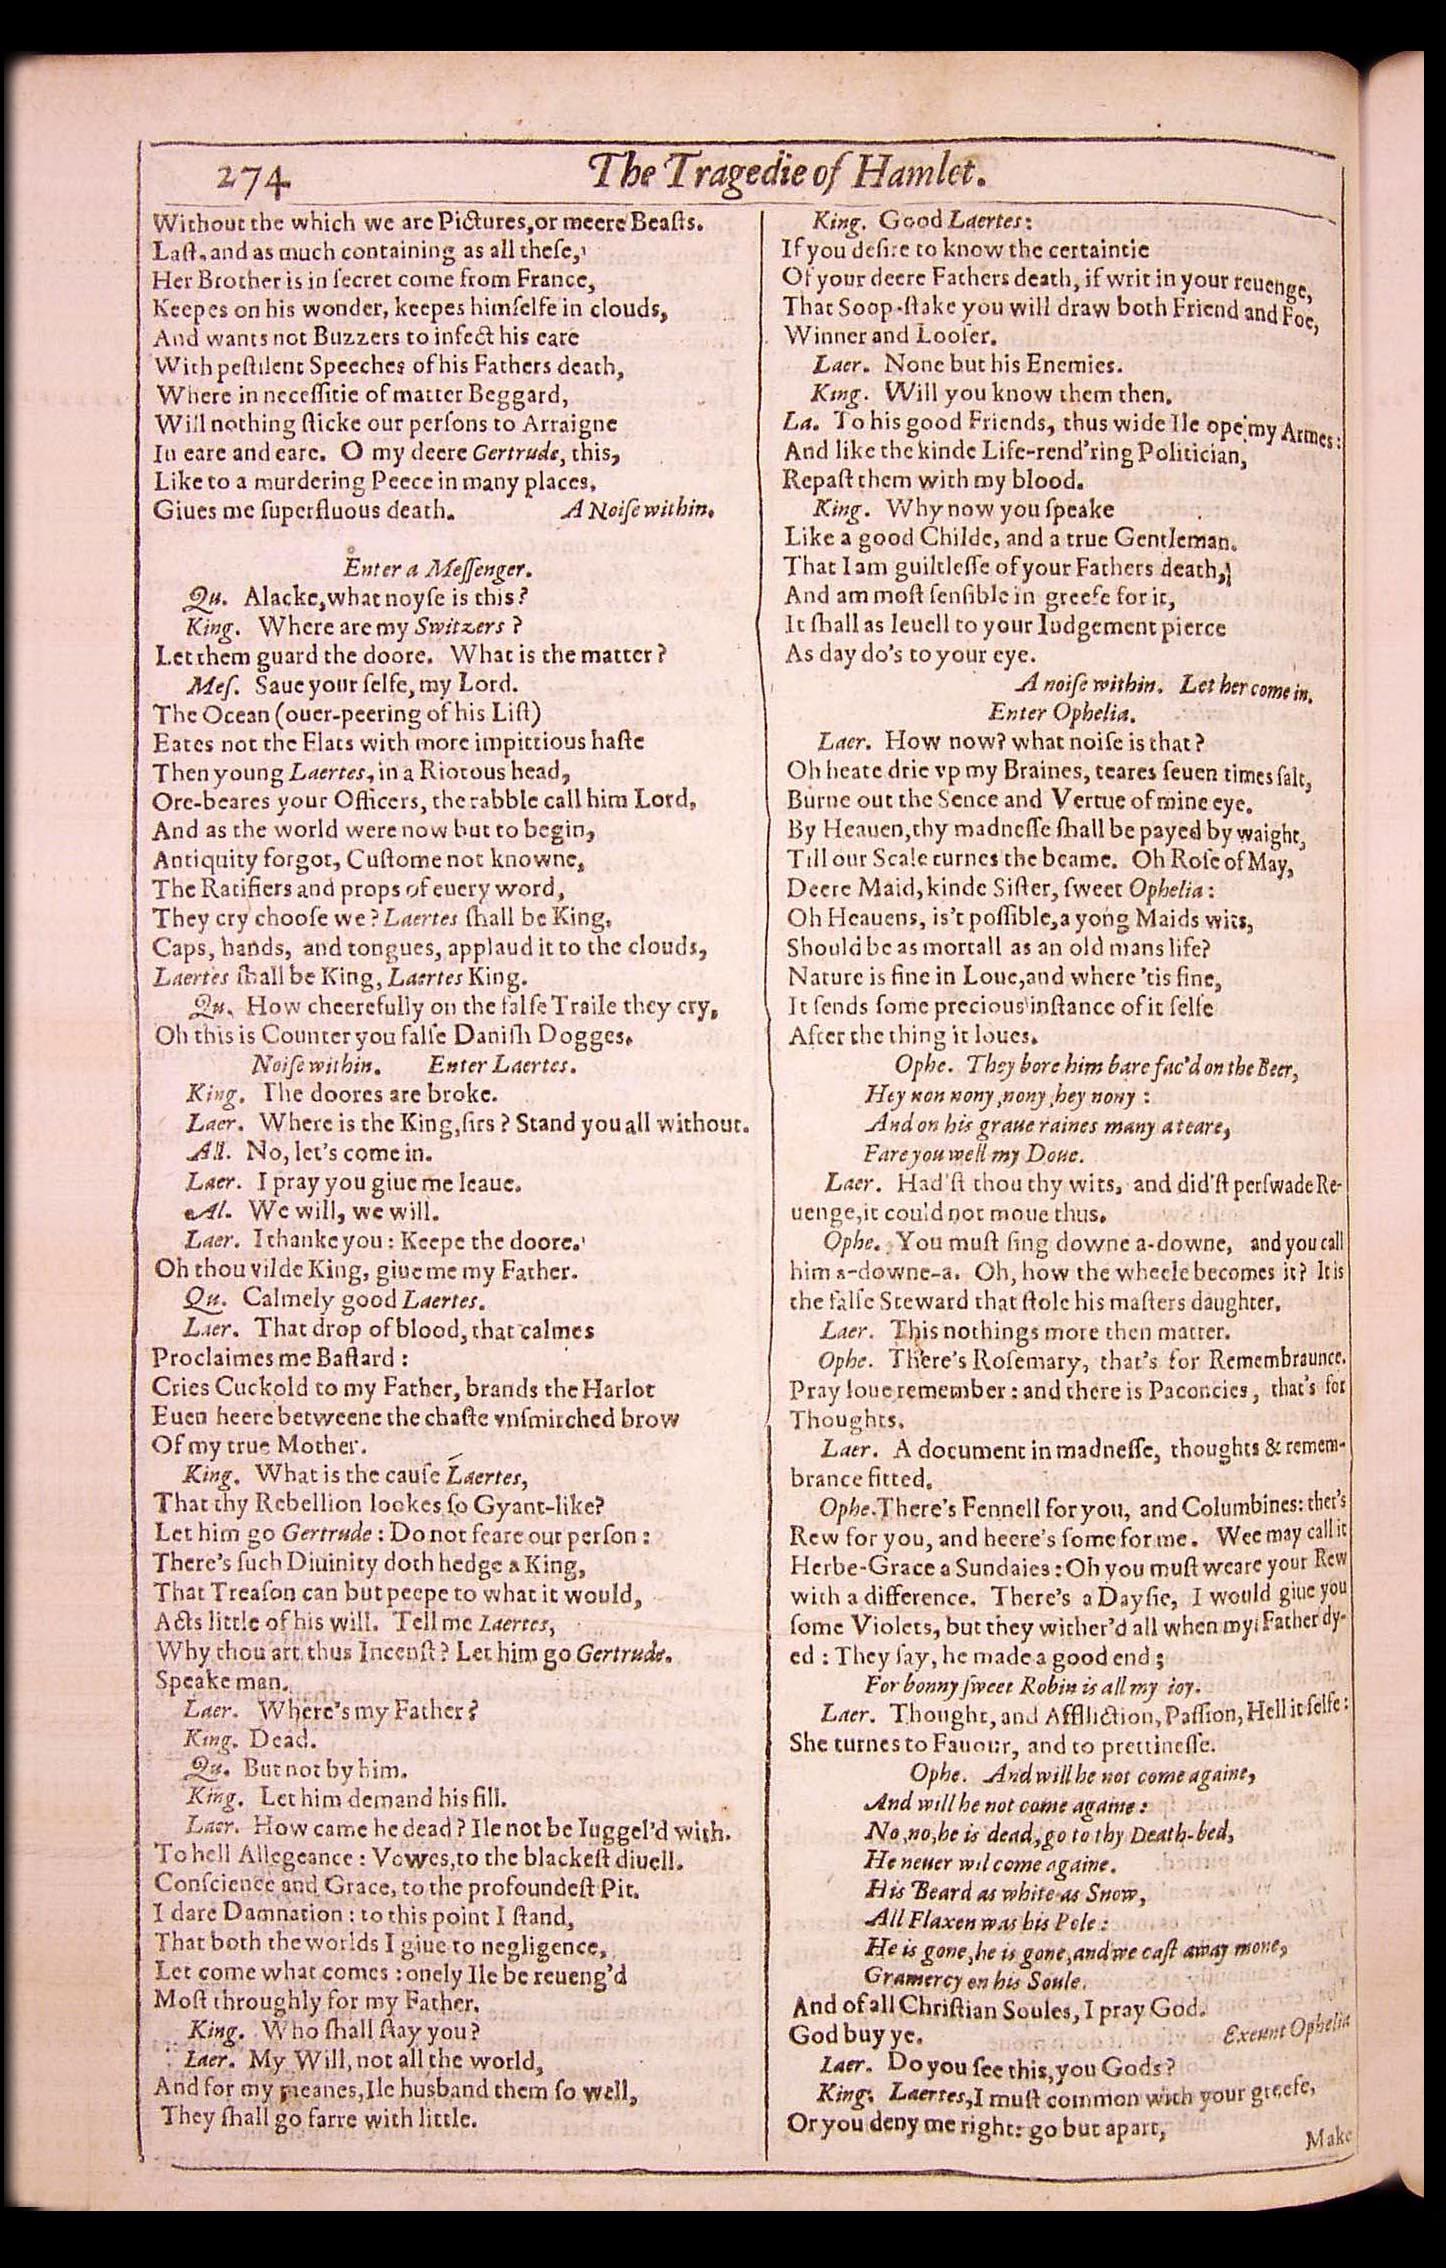 274
The Tragedie of Hamlet.
Without the which we are Pictures, or meere Beasts.
Last, and as much containing as all these,
Her Brother is in ſecret come from France,
Keepes on his wonder, keepes himſelfe in clouds,
And wants not Buzzers to infect his eare
With peſtilent Speeches of his Fathers death,
Where in neceſſitie of matter Beggard,
Will nothing ſticke our perſons to Arraigne
In eare and eare. O my deere Gertrude, this,
Like to a murdering Peece in many places,
Giues me ſuperfluous death. A Noiſe within.
Enter a Meſſenger.
Qu. Alacke, what noyſe is this?
King. Where are my Switzers?
Let them guard the doore. What is the matter?
Meſ. Saue your ſelfe, my Lord.
The Ocean (ouer-peering of his Liſt)
Eates not the Flats with more impittious haſte
Then young Laertes, in a Riotous head,
Ore-beares your Officers, the rabble call him Lord,
And as the world were now but to begin,
Antiquity forgot, Cuſtome not knowne,
The Ratifiers and props of euery word,
They cry chooſe we? Laertes ſhall be King,
Caps, hands, and tongues, applaud it to the clouds,
Laertes ſhall be King, Laertes King.
Qu. How cheerefully on the falſe Traile they cry,
Oh this is Counter you falſe Daniſh Dogges.
Noiſe within. Enter Laertes.
King. The doores are broke.
Laer. Where is the King, ſirs? Stand you all without.
All. No, let's come in.
Laer. I pray you giue me leaue.
Al. We will, we will.
Laer. I thanke you: Keepe the doore.
Oh thou vilde King, giue me my Father.
Qu. Calmely good Laertes.
Laer. That drop of blood, that calmes
Proclaimes me Baſtard:
Cries Cuckold to my Father, brands the Harlot
Euen heere betweene the chaſte vnſmirched brow
Of my true Mother.
King. What is the cauſe Laertes,
That thy Rebellion lookes ſo Gyant-like?
Let him go Gertrude: Do not feare our perſon:
There's ſuch Diuinity doth hedge a King,
That Treaſon can but peepe to what it would,
Acts little of his will. Tell me Laertes,
Why thou art thus Incenſt? Let him go Gertrude.
Speake man.
Laer. Where's my Father?
King. Dead.
Qu. But not by him.
King. Let him demand his fill.
Laer. How came he dead? Ile not be Iuggel'd with.
To hell Allegeance: Vowes, to the blackeſt diuell.
Conſcience and Grace, to the profoundeſt Pit.
I dare Damnation: to this point I ſtand,
That both the worlds I giue to negligence,
Let come what comes: onely Ile be reueng'd
Moſt throughly for my Father.
King. Who ſhall ſtay you?
Laer. My Will, not all the world,
And for my meanes, Ile husband them ſo well,
They ſhall go farre with little.
King. Good Laertes:
If you deſire to know the certaintie
Of your deere Fathers death, if writ in your reuenge,
That Soop-ſtake you will draw both Friend and Foe,
Winner and Looſer.
Laer. None but his Enemies.
King. Will you know them then.
La. To his good Friends, thus wide Ile ope my Armes:
And like the kinde Life-rend'ring Politician,
Repaſt them with my blood.
King. Why now you ſpeake
Like a good Childe, and a true Gentleman.
That I am guiltleſſe of your Fathers death,
And am moſt ſenſible in greefe for it,
It ſhall as leuell to your Iudgement pierce
As day do's to your eye.
A noiſe within. Let her come in.
Enter Ophelia.
Laer. How now? what noiſe is that?
Oh heate drie vp my Braines, teares ſeuen times ſalt,
Burne out the Sence and Vertue of mine eye.
By Heauen, thy madneſſe ſhall be payed by waight,
Till our Scale turnes the beame. Oh Roſe of May,
Deere Maid, kinde Siſter, ſweet Ophelia:
Oh Heauens, is't poſſible, a yong Maids wits,
Should be as mortall as an old mans life?
Nature is fine in Loue, and where 'tis fine,
It ſends ſome precious inſtance of it ſelfe
After the thing it loues.
Ophe. They bore him bare fac'd on the Beer,
Hey non nony, nony, hey nony:
And on his graue raines many a teare,
Fare you well my Doue.
Laer. Had'ſt thou thy wits, and did'ſt perſwade Re-
uenge, it could not moue thus.
Ophe. You muſt ſing downe a-downe, and you call
him a-downe-a. Oh, how the wheele becomes it? It is
the falſe Steward that ſtole his maſters daughter.
Laer. This nothings more then matter.
Ophe. There's Roſemary, that's for Remembraunce.
Pray loue remember: and there is Paconcies, that's for
Thoughts.
Laer. A document in madneſſe, thoughts & remem-
brance fitted.
Ophe. There's Fennell for you, and Columbines: ther's
Rew for you, and heere's ſome for me. Wee may call it
Herbe-Grace a Sundaies: Oh you muſt weare your Rew
with a difference. There's a Dayſie, I would giue you
ſome Violets, but they wither'd all when my Father dy-
ed: They ſay, he made a good end;
For bonny ſweet Robin is all my ioy.
Laer. Thought, and Affliction, Paſſion, Hell it ſelfe:
She turnes to Fauour, and to prettineſſe.
Ophe. And will he not come againe,
And will he not come againe:
No, no, he is dead, go to thy Death-bed,
He neuer wil come againe.
His Beard as white as Snow,
All Flaxen was his Pole:
He is gone, he is gone, and we caſt away mone,
Gramercy on his Soule.
And of all Chriſtian Soules, I pray God.
God buy ye. Exeunt Ophelia
Laer. Do you ſee this, you Gods?
King. Laertes, I muſt common with your greefe,
Or you deny me right: go but apart,
Make